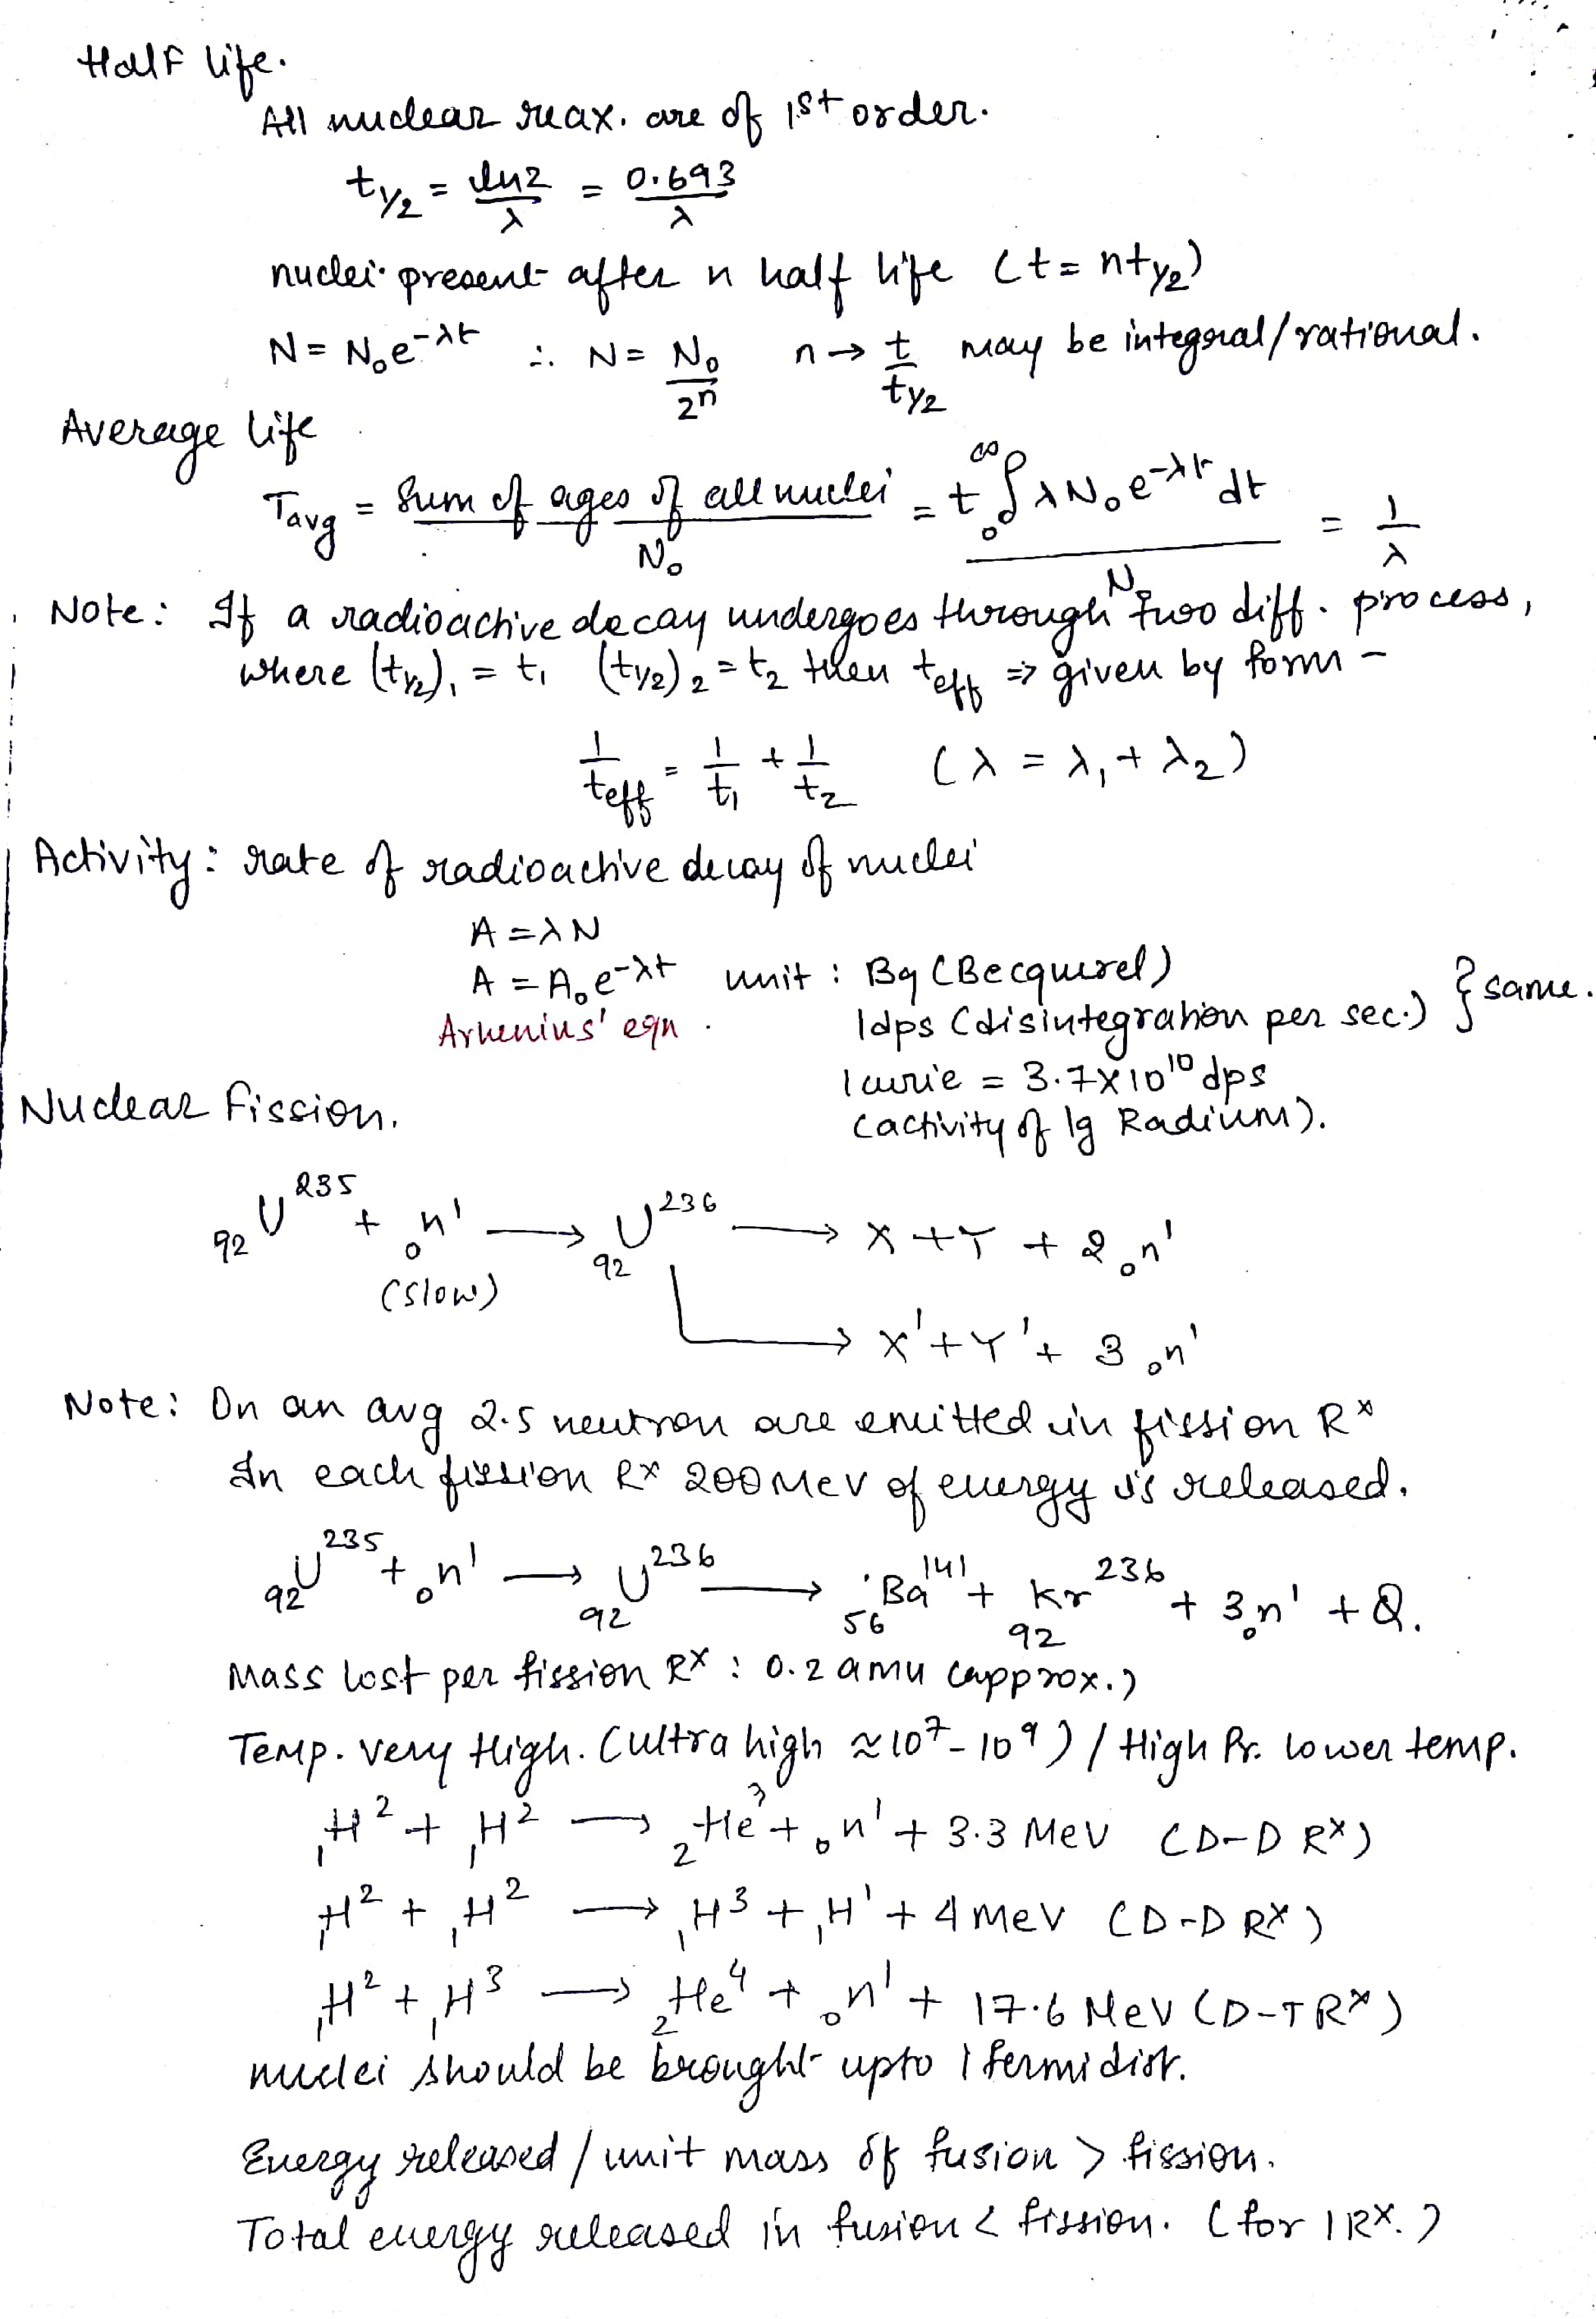 Half life.
All nuclear reax. are of 1st order.
t1/2 = ln2/λ = 0.693/λ
nuclei present after n half life (t = nt1/2)
N = N₀e^-λt ∴ N = N₀/2ⁿ n → t/t1/2 may be integral/rational.
Average life
Tavg = Sum of ages of all nuclei/N₀ = t ₀∫^∞ λN₀e^-λt dt/N₀ = 1/λ
Note: If a radioactive decay undergoes through two diff. process,
where (t1/2)₁ = t₁ (t1/2)₂ = t₂ then teff ⇒ given by form -
1/teff = 1/t₁ + 1/t₂ (λ = λ₁ + λ₂)
Activity: rate of radioactive decay of nuclei
A = λN
A = A₀e^-λt unit : Bq (Becquerel)
Arhenius' eqn. 1dps (disintegration per sec.) } same.
1 curie = 3.7×10¹⁰ dps
Nuclear Fission. (activity of 1g Radium).
₉₂U²³⁵ + ₀n¹ → ₉₂U²³⁶ → X + Y + 2 ₀n¹
(slow)
→ X' + Y' + 3 ₀n¹
Note: On an avg 2.5 neutron are emitted in fission Rˣ
In each fission Rˣ 200 MeV of energy is released.
₉₂U²³⁵ + ₀n¹ → ₉₂U²³⁶ → ₅₆Ba¹⁴¹ + ₉₂Kr²³⁶ + 3₀n¹ + Q.
Mass lost per fission Rˣ : 0.2 amu (approx.)
Temp. very High. (ultra high ≈ 10⁷ - 10⁹) / High Pr. lower temp.
₁H² + ₁H² → ₂He³ + ₀n¹ + 3.3 MeV (D-D Rˣ)
₁H² + ₁H² → ₁H³ + ₁H¹ + 4 MeV (D-D Rˣ)
₁H² + ₁H³ → ₂He⁴ + ₀n¹ + 17.6 MeV (D-T Rˣ)
nuclei should be brought upto 1 fermi dist.
Energy released / unit mass of fusion > fission.
Total energy released in fusion < fission. (for 1 Rˣ.)